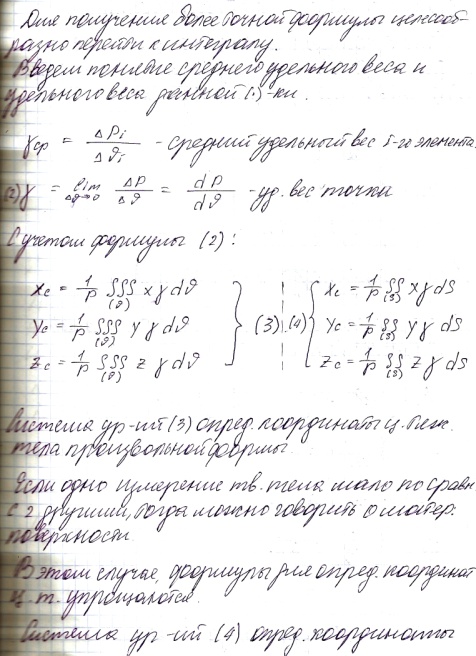 Для получения более точной формулы целесооб-
разно перейти к интегралу.
Введем понятие среднего удельного веса и
удельного веса данной (·)-ки.
γср = ΔPi / Δϑi - средний удельный вес i-го элемента
(2) γ = lim Δϑ→0 ΔP / Δϑ = dP / dϑ - уд. вес точки
С учетом формулы (2):
xc = 1/P ∭(ϑ) x γ dϑ } (3) | (4) { xc = 1/P ∬(S) x γ dS
yc = 1/P ∭(ϑ) y γ dϑ } { yc = 1/P ∬(S) y γ dS
zc = 1/P ∭(ϑ) z γ dϑ } { zc = 1/P ∬(S) z γ dS
Система ур-ий (3) опред. координаты ц. тяж.
тела произвольной формы.
Если одно измерение тв. тела мало по сравн
с 2 другими, тогда можно говорить о матер.
поверхности
В этом случае, формулы для опред. координат
ц. т. упрощаются.
Система ур-ий (4) опред. координаты